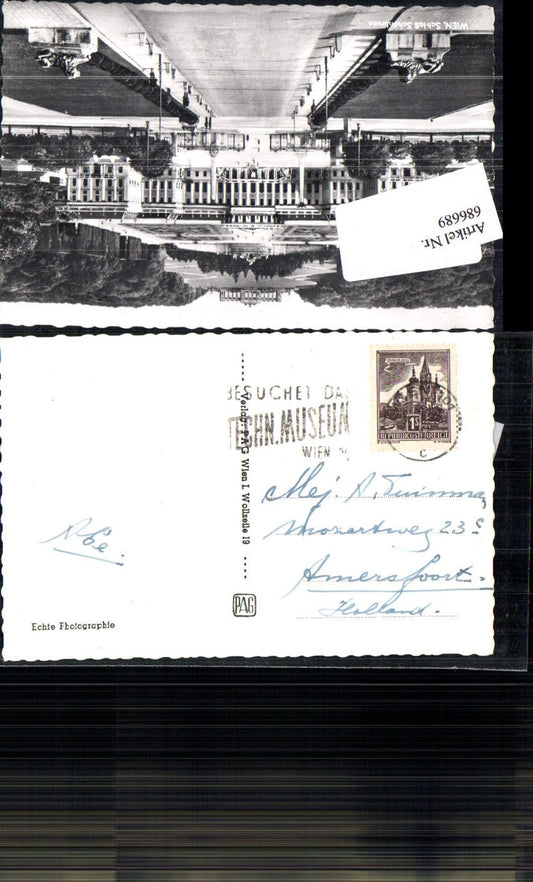 WIEN, Schloß Schönbrunn
Artikel Nr.
686689
BESUCHET DA
TECHN. MUSEUM
WIEN
1S
REPUBLIK ÖSTERREICH
C
Verlag: PAG Wien I, Wollzeile 19
Mej. A.
Mozartweg 23
Amersfoort.
Holland.
PAG
Echte Photographie